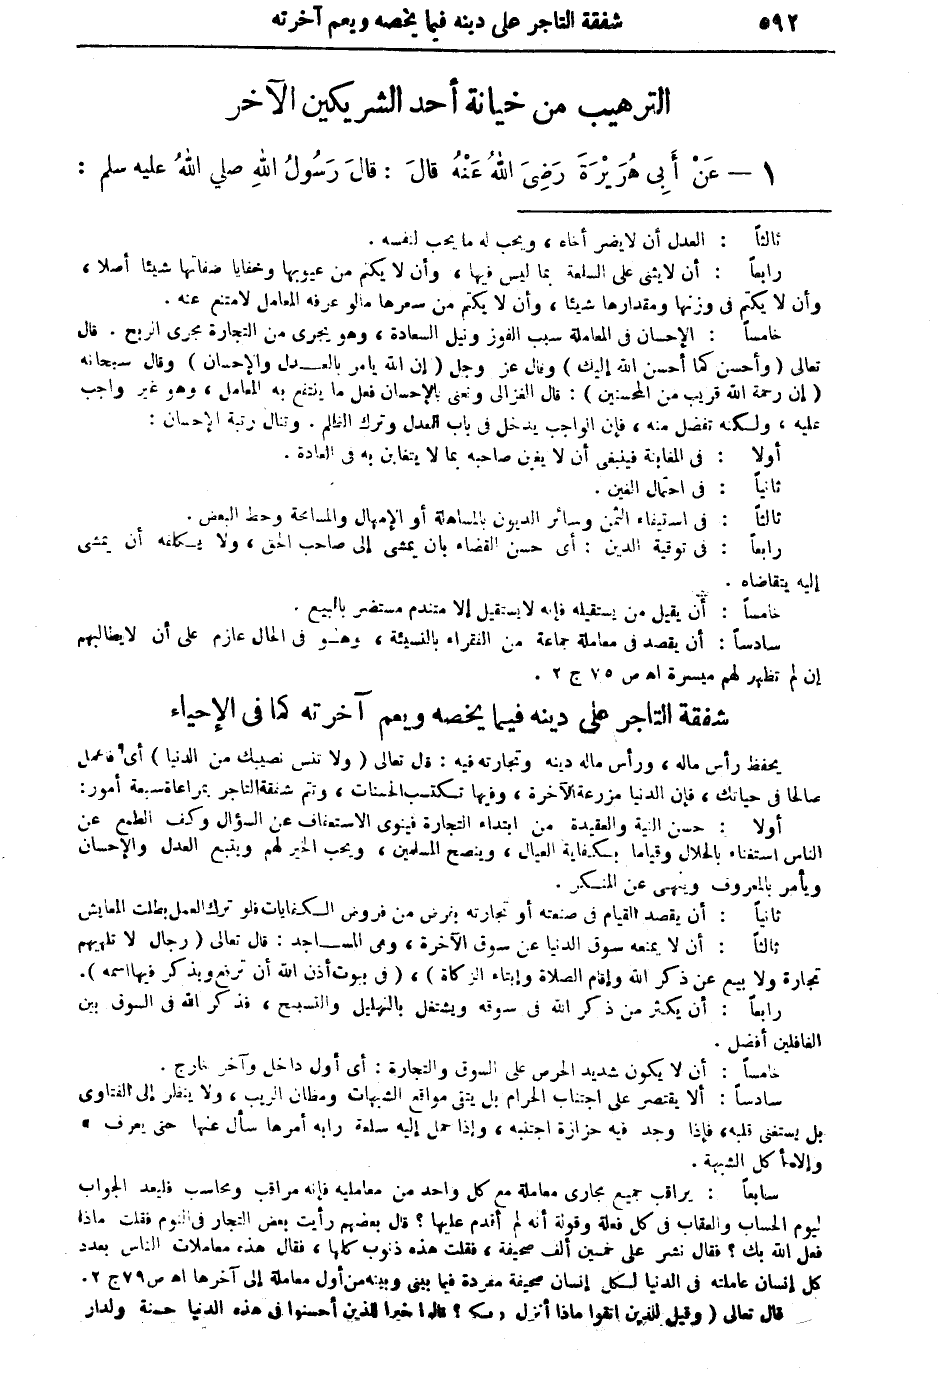 ٥٩٢ شفقة التاجر على دينه فيما يخصه ويعم آخرته
الترهيب من خيانة أحد الشريكين الآخر
١ — عَنْ أَبِي هُرَيْرَةَ رَضِيَ اللهُ عَنْهُ قالَ : قالَ رَسُولُ اللهِ صلي اللهُ عليه سلم :
ثالثاً : العدل أن لا يضر أخاه ، ويحب له ما يحب لنفسه .
رابعاً : أن لا يثنى على السلعة بما ليس فيها ، وأن لا يكتم من عيوبها وخفايا صفاتها شيئا أصلا ،
وأن لا يكتم فى وزنها ومقدارها شيئا ، وأن لا يكتم من سعرها مالو عرفه المعامل لامتنع عنه .
خامساً : الإحسان فى المعاملة سبب الفوز ونيل السعادة ، وهو يجرى من التجارة مجرى الربح . قال
تعالى ( وأحسن كما أحسن الله إليك ) وقال عز وجل ( إن الله يامر بالعدل والإحسان ) وقال سبحانه
( إن رحمة الله قريب من المحسنين ) : قال الغزالى ونعنى بالإحسان فعل ما ينتفع به المعامل ، وهو غير واجب
عليه ، ولكنه تفضل منه ، فإن الواجب يدخل فى باب العدل وترك الظلم . وتنال رتبة الإحسان :
أولا : فى المغابنة فينبغى أن لا يغبن صاحبه بما لا يتغابن به فى العادة .
ثانياً : فى احتمال الغبن .
ثالثاً : فى استيفاء الثمن وسائر الديون بالمساهلة أو الإمهال والمسامحة وحط البعض .
رابعاً : فى توفية الدين : أى حسن القضاء بان يمشى إلى صاحب الحق ، ولا يكلفه أن يمشى
إليه يتقاضاه .
خامساً : أن يقيل من يستقيله فإنه لا يستقيل إلا متندم مستضر بالبيع .
سادساً : أن يقصد فى معاملة جماعة من الفقراء بالنسيئة ، وهو فى الحال عازم على أن لا يطالبهم
إن لم تظهر لهم ميسرة اه ص ٧٥ ج ٢ .
شفقة التاجر على دينه فيما يخصه ويعم آخرته كما فى الإحياء
يحفظ رأس ماله ، ورأس ماله دينه وتجارته فيه : قال تعالى ( ولا تنس نصيبك من الدنيا ) أى فاعمل
صالحا فى حياتك ، فإن الدنيا مزرعة الآخرة ، وفيها تكتسب الحسنات ، وتتم شفقة التاجر بمراعاة سبعة أمور:
أولا : حسن النية والعقيدة من ابتداء التجارة فينوى الاستعفاف عن السؤال وكف الطمع عن
الناس استغناء بالحلال وقياما بكفاية العيال ، وينصح المسلمين ، ويحب الخير لهم ويتبع العدل والإحسان
ويأمر بالمعروف وينهى عن المنكر .
ثانياً : أن يقصد القيام فى صنعته أو تجارته بفرض من فروض الكفايات فلو ترك العمل بطلت المعايش
ثالثاً : أن لا يمنعه سوق الدنيا عن سوق الآخرة ، وهى المساجد : قال تعالى ( رجال لا تلهيهم
تجارة ولا بيع عن ذكر الله وإقام الصلاة وإيتاء الزكاة ) ، ( فى بيوت أذن الله أن ترفع ويذكر فيها اسمه ).
رابعاً : أن يكثر من ذكر الله فى سوقه ويشتغل بالتهليل والتسبيح ، فذكر الله فى السوق بين
الغافلين أفضل .
خامساً : أن لا يكون شديد الحرص على السوق والتجارة : أى أول داخل وآخر خارج .
سادساً : ألا يقتصر على اجتناب الحرام بل يتقى مواقع الشبهات ومظان الريب ، ولا ينظر إلى الفتاوى
بل يستفتى قلبه، فإذا وجد فيه حزازة اجتنبه ، وإذا حمل إليه سلعة رابه أمرها سأل عنها حتى يعرف
وإلا أكل الشبهة .
سابعاً : يراقب جميع مجارى معاملة مع كل واحد من معامليه فإنه مراقب ومحاسب فليعد الجواب
ليوم الحساب والعقاب فى كل فعلة وقولة أنه لم أقدم عليها ؟ قال بعضهم رأيت بعض التجار فى النوم فقلت ماذا
فعل الله بك ؟ فقال نشر على خمسين ألف صحيفة ، فقلت هذه ذنوب كلها ، فقال هذه معاملات الناس بعدد
كل إنسان عاملته فى الدنيا لكل إنسان صحيفة مفردة فيما بينى وبينه من أول معاملة إلى آخرها اه ص ٧٩ ج ٢.
قال تعالى ( وقيل للذين اتقوا ماذا أنزل ربكم ؟ قالوا خيرا للذين أحسنوا فى هذه الدنيا حسنة ولدار